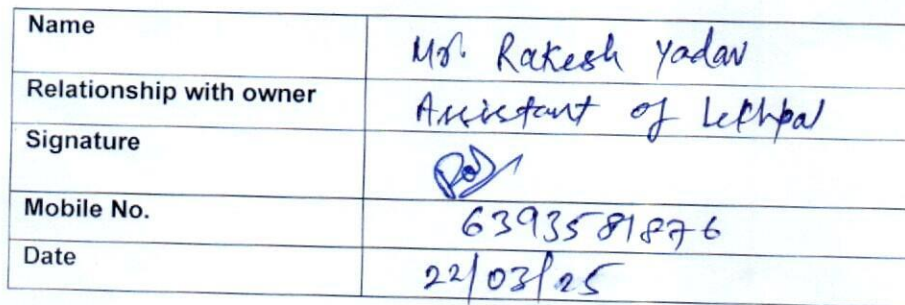 Name Mr. Rakesh Yadav
Relationship with owner Assistant of Lekhpal
Signature
Mobile No. 6393581876
Date 22/03/25